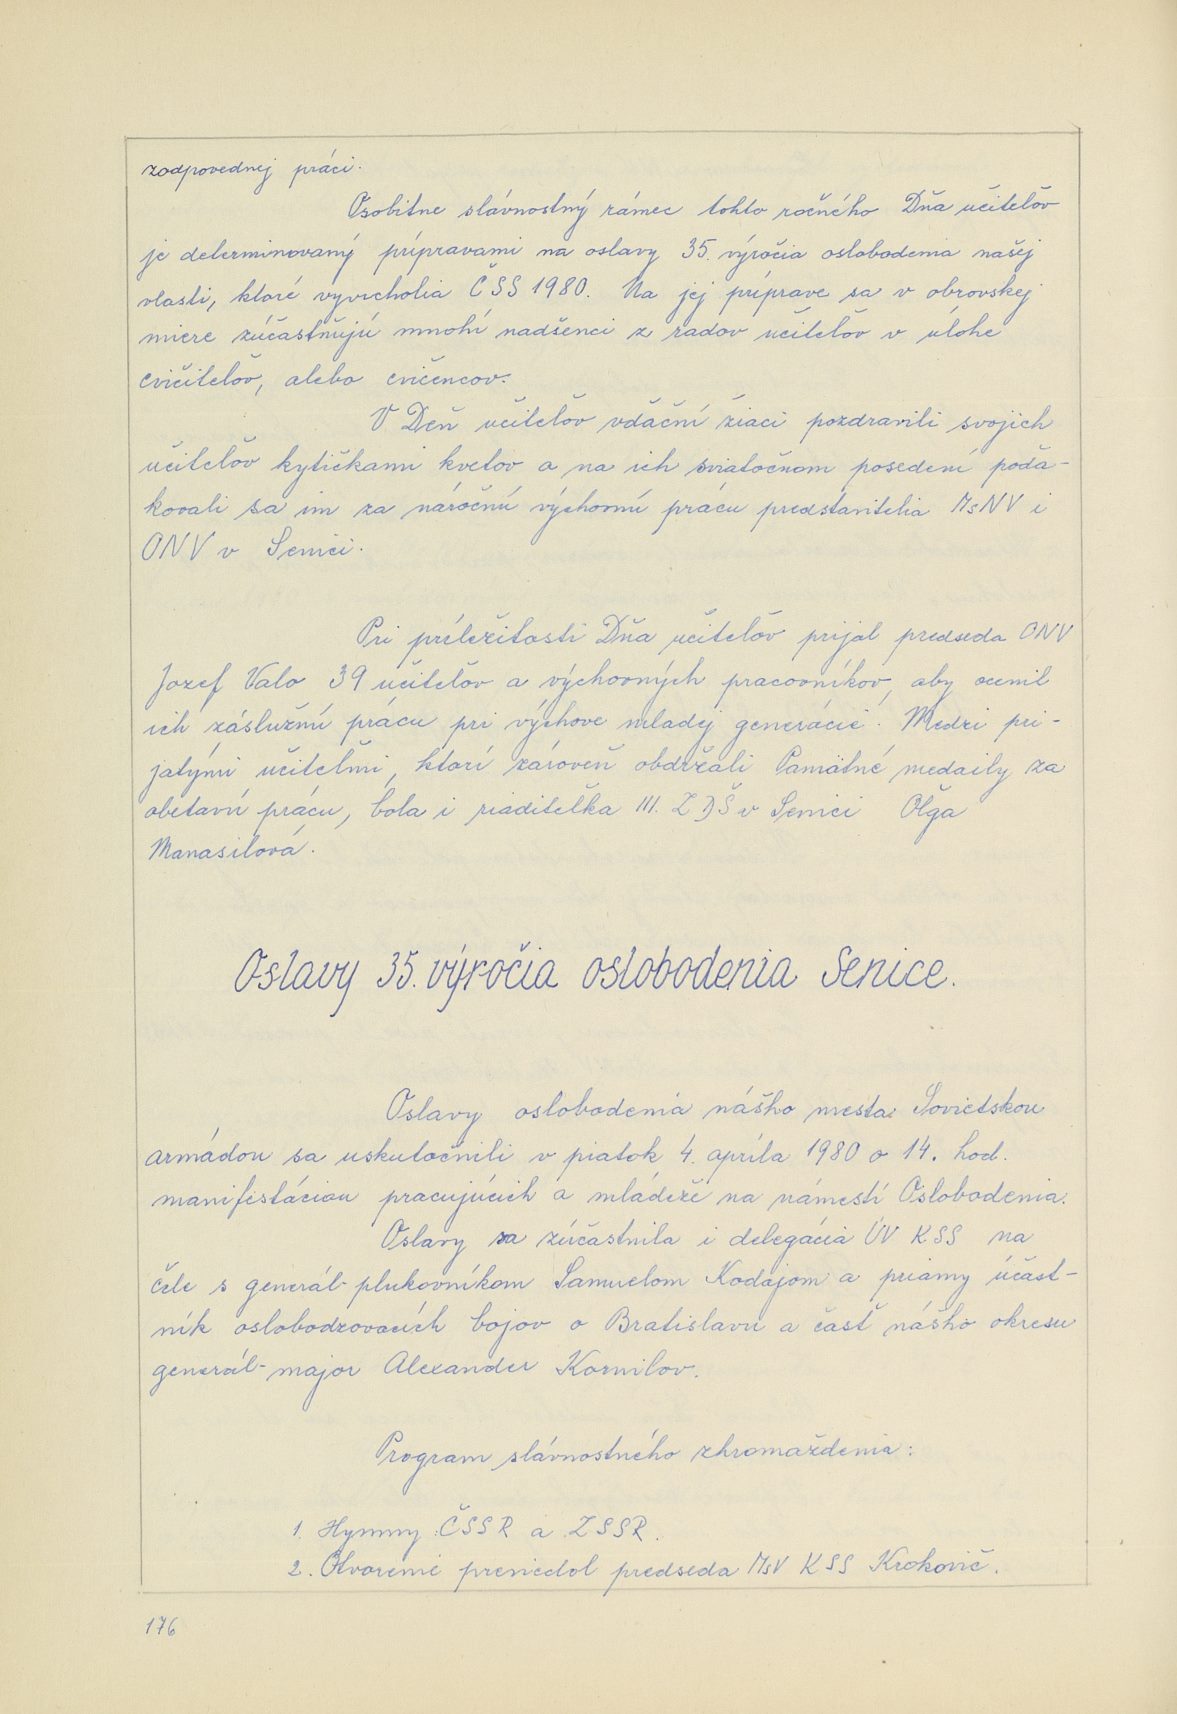 zodpovednej práci.
Osobitne slávnostný rámec tohto ročného Dňa učiteľov
je determinovaný prípravami na oslavy 35. výročia oslobodenia našej
vlasti, ktoré vyvrcholia ČSS 1980. Na jej príprave sa v obrovskej
miere zúčastňujú mnohí nadšenci z radov učiteľov v úlohe
cvičiteľov, alebo cvičencov.
V Deň učiteľov vďační žiaci pozdravili svojich
učiteľov kytičkami kvetov a na ich sviatočnom posedení poďa-
kovali sa im za náročnú výchovnú prácu predstavitelia MsNV i
ONV v Senici.
Pri príležitosti Dňa učiteľov prijal predseda ONV
Jozef Valo 39 učiteľov a výchovných pracovníkov, aby ocenil
ich záslužnú prácu pri výchove mladej generácie. Medzi pri-
jatými učiteľmi, ktorí zároveň obdržali Pamätné medaily za
obetavú prácu, bola i riaditeľka III. ZDŠ v Senici Oľga
Manasilová.
Oslavy 35. výročia oslobodenia Senice.
Oslavy oslobodenia nášho mesta Sovietskou
armádou sa uskutočnili v piatok 4. apríla 1980 o 14. hod.
manifestáciou pracujúcich a mládeže na námestí Oslobodenia.
Oslavy sa zúčastnila i delegácia ÚV KSS na
čele s generál-plukovníkom Samuelom Kodajom a priamy účast-
ník oslobodzovacích bojov o Bratislavu a časť nášho okresu
generál-major Alexander Kornilov.
Program slávnostného zhromaždenia:
1. Hymny ČSSR a ZSSR.
2. Otvorenie previedol predseda MsV KSS Krokovič.
176